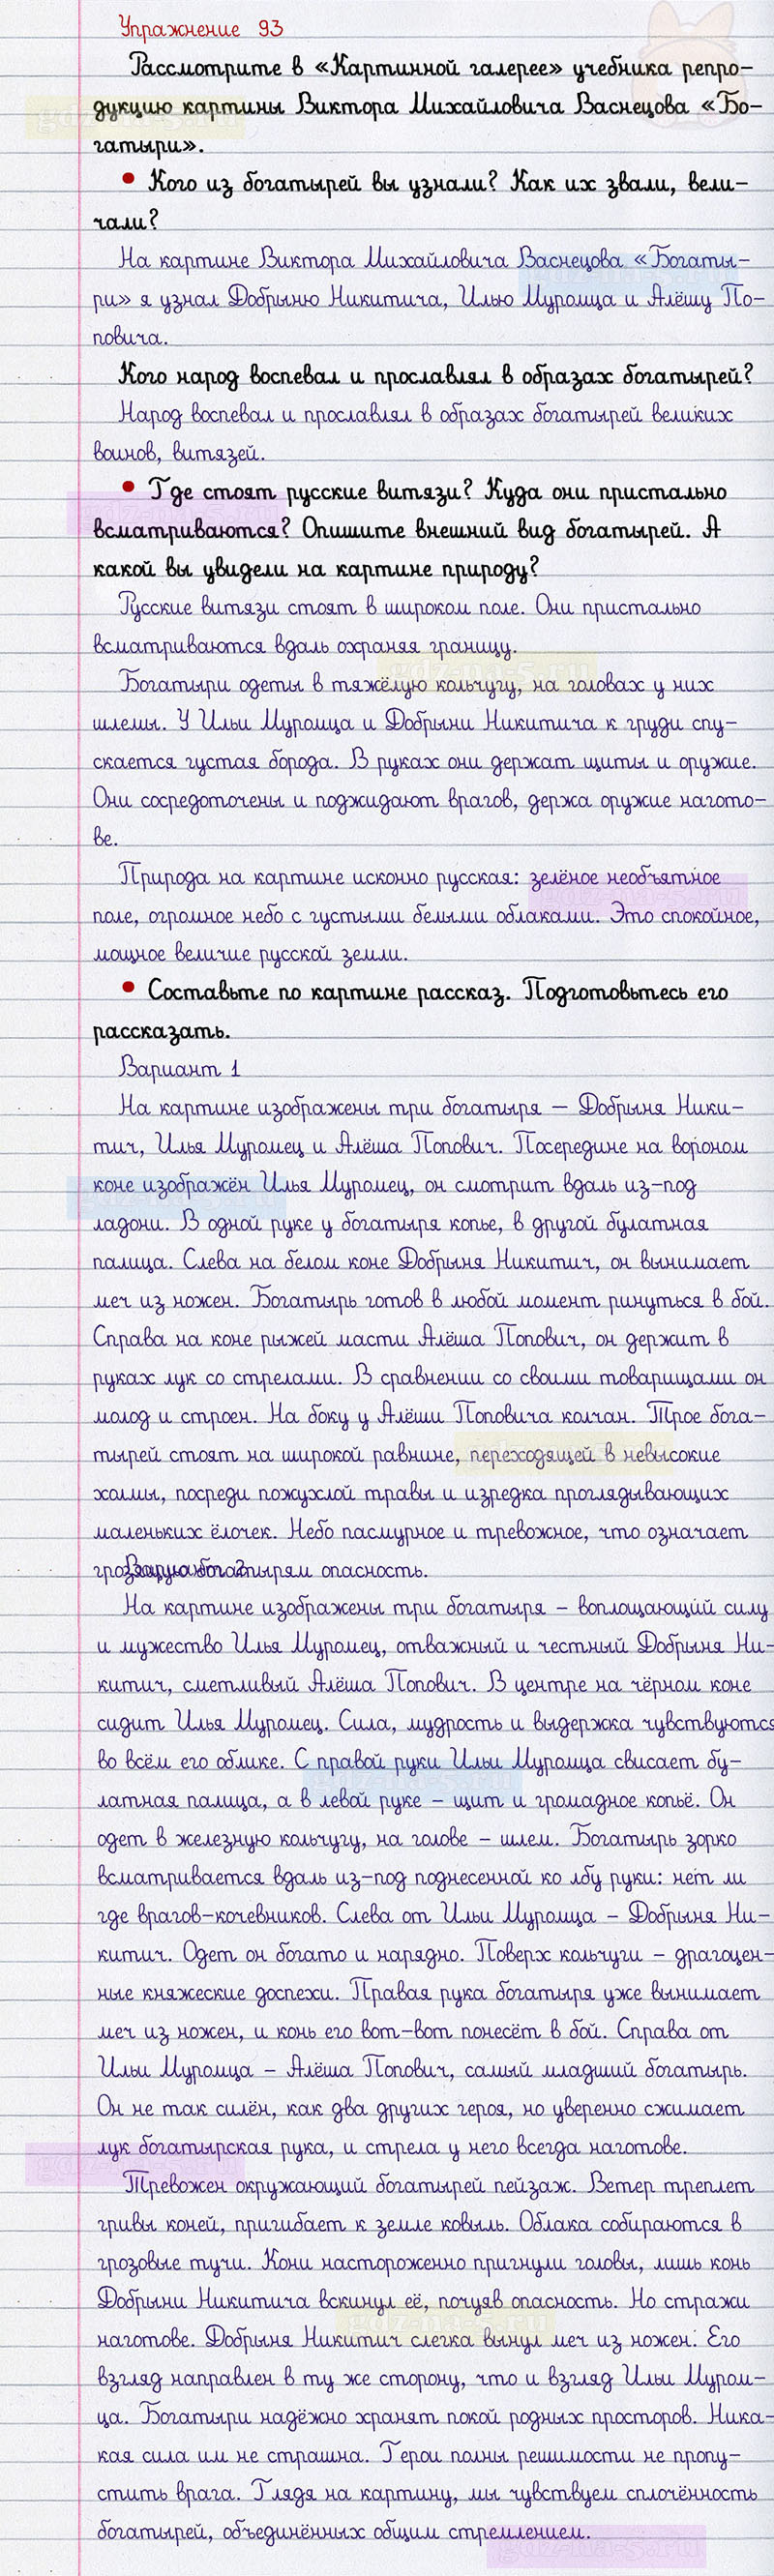 Упражнение 93
Рассмотрите в «Картинной галерее» учебника репро-
дукцию картины Виктора Михайловича Васнецова «Бо-
гатыри».
• Кого из богатырей вы узнали? Как их звали, вели-
чали?
На картине Виктора Михайловича Васнецова «Богаты-
ри» я узнал Добрыню Никитича, Илью Муромца и Алёшу По-
повича.
Кого народ воспевал и прославлял в образах богатырей?
Народ воспевал и прославлял в образах богатырей великих
воинов, витязей.
• Где стоят русские витязи? Куда они пристально
всматриваются? Опишите внешний вид богатырей. А
какой вы увидели на картине природу?
Русские витязи стоят в широком поле. Они пристально
всматриваются вдаль охраняя границу.
Богатыри одеты в тяжёлую кольчугу, на головах у них
шлемы. У Ильи Муромца и Добрыни Никитича к груди спу-
скается густая борода. В руках они держат щиты и оружие.
Они сосредоточены и поджидают врагов, держа оружие нагото-
ве.
Природа на картине исконно русская: зелёное необъятное
поле, огромное небо с густыми белыми облаками. Это спокойное,
мощное величие русской земли.
• Составьте по картине рассказ. Подготовьтесь его
рассказать.
Вариант 1
На картине изображены три богатыря — Добрыня Ники-
тич, Илья Муромец и Алёша Попович. Посередине на вороном
коне изображён Илья Муромец, он смотрит вдаль из-под
ладони. В одной руке у богатыря копье, в другой булатная
палица. Слева на белом коне Добрыня Никитич, он вынимает
меч из ножен. Богатырь готов в любой момент ринуться в бой.
Справа на коне рыжей масти Алёша Попович, он держит в
руках лук со стрелами. В сравнении со своими товарищами он
молод и строен. На боку у Алёши Поповича колчан. Трое бога-
тырей стоят на широкой равнине, переходящей в невысокие
холмы, посреди пожухлой травы и изредка проглядывающих
маленьких ёлочек. Небо пасмурное и тревожное, что означает
грозящую богатырям опасность.
Вариант 2
На картине изображены три богатыря – воплощающий силу
и мужество Илья Муромец, отважный и честный Добрыня Ни-
китич, сметливый Алёша Попович. В центре на чёрном коне
сидит Илья Муромец. Сила, мудрость и выдержка чувствуются
во всём его облике. С правой руки Ильи Муромца свисает бу-
латная палица, а в левой руке – щит и громадное копьё. Он
одет в железную кольчугу, на голове – шлем. Богатырь зорко
всматривается вдаль из-под поднесенной ко лбу руки: нет ли
где врагов-кочевников. Слева от Ильи Муромца – Добрыня Ни-
китич. Одет он богато и нарядно. Поверх кольчуги – драгоцен-
ные княжеские доспехи. Правая рука богатыря уже вынимает
меч из ножен, и конь его вот-вот понесёт в бой. Справа от
Ильи Муромца – Алёша Попович, самый младший богатырь.
Он не так силён, как два других героя, но уверенно сжимает
лук богатырская рука, и стрела у него всегда наготове.
Тревожен окружающий богатырей пейзаж. Ветер треплет
гривы коней, пригибает к земле ковыль. Облака собираются в
грозовые тучи. Кони настороженно пригнули головы, лишь конь
Добрыни Никитича вскинул её, почуяв опасность. Но стражи
наготове. Добрыня Никитич слегка вынул меч из ножен. Его
взгляд направлен в ту же сторону, что и взгляд Ильи Муром-
ца. Богатыри надёжно хранят покой родных просторов. Ника-
кая сила им не страшна. Герои полны решимости не пропу-
стить врага. Глядя на картину, мы чувствуем сплочённость
богатырей, объединённых общим стремлением.